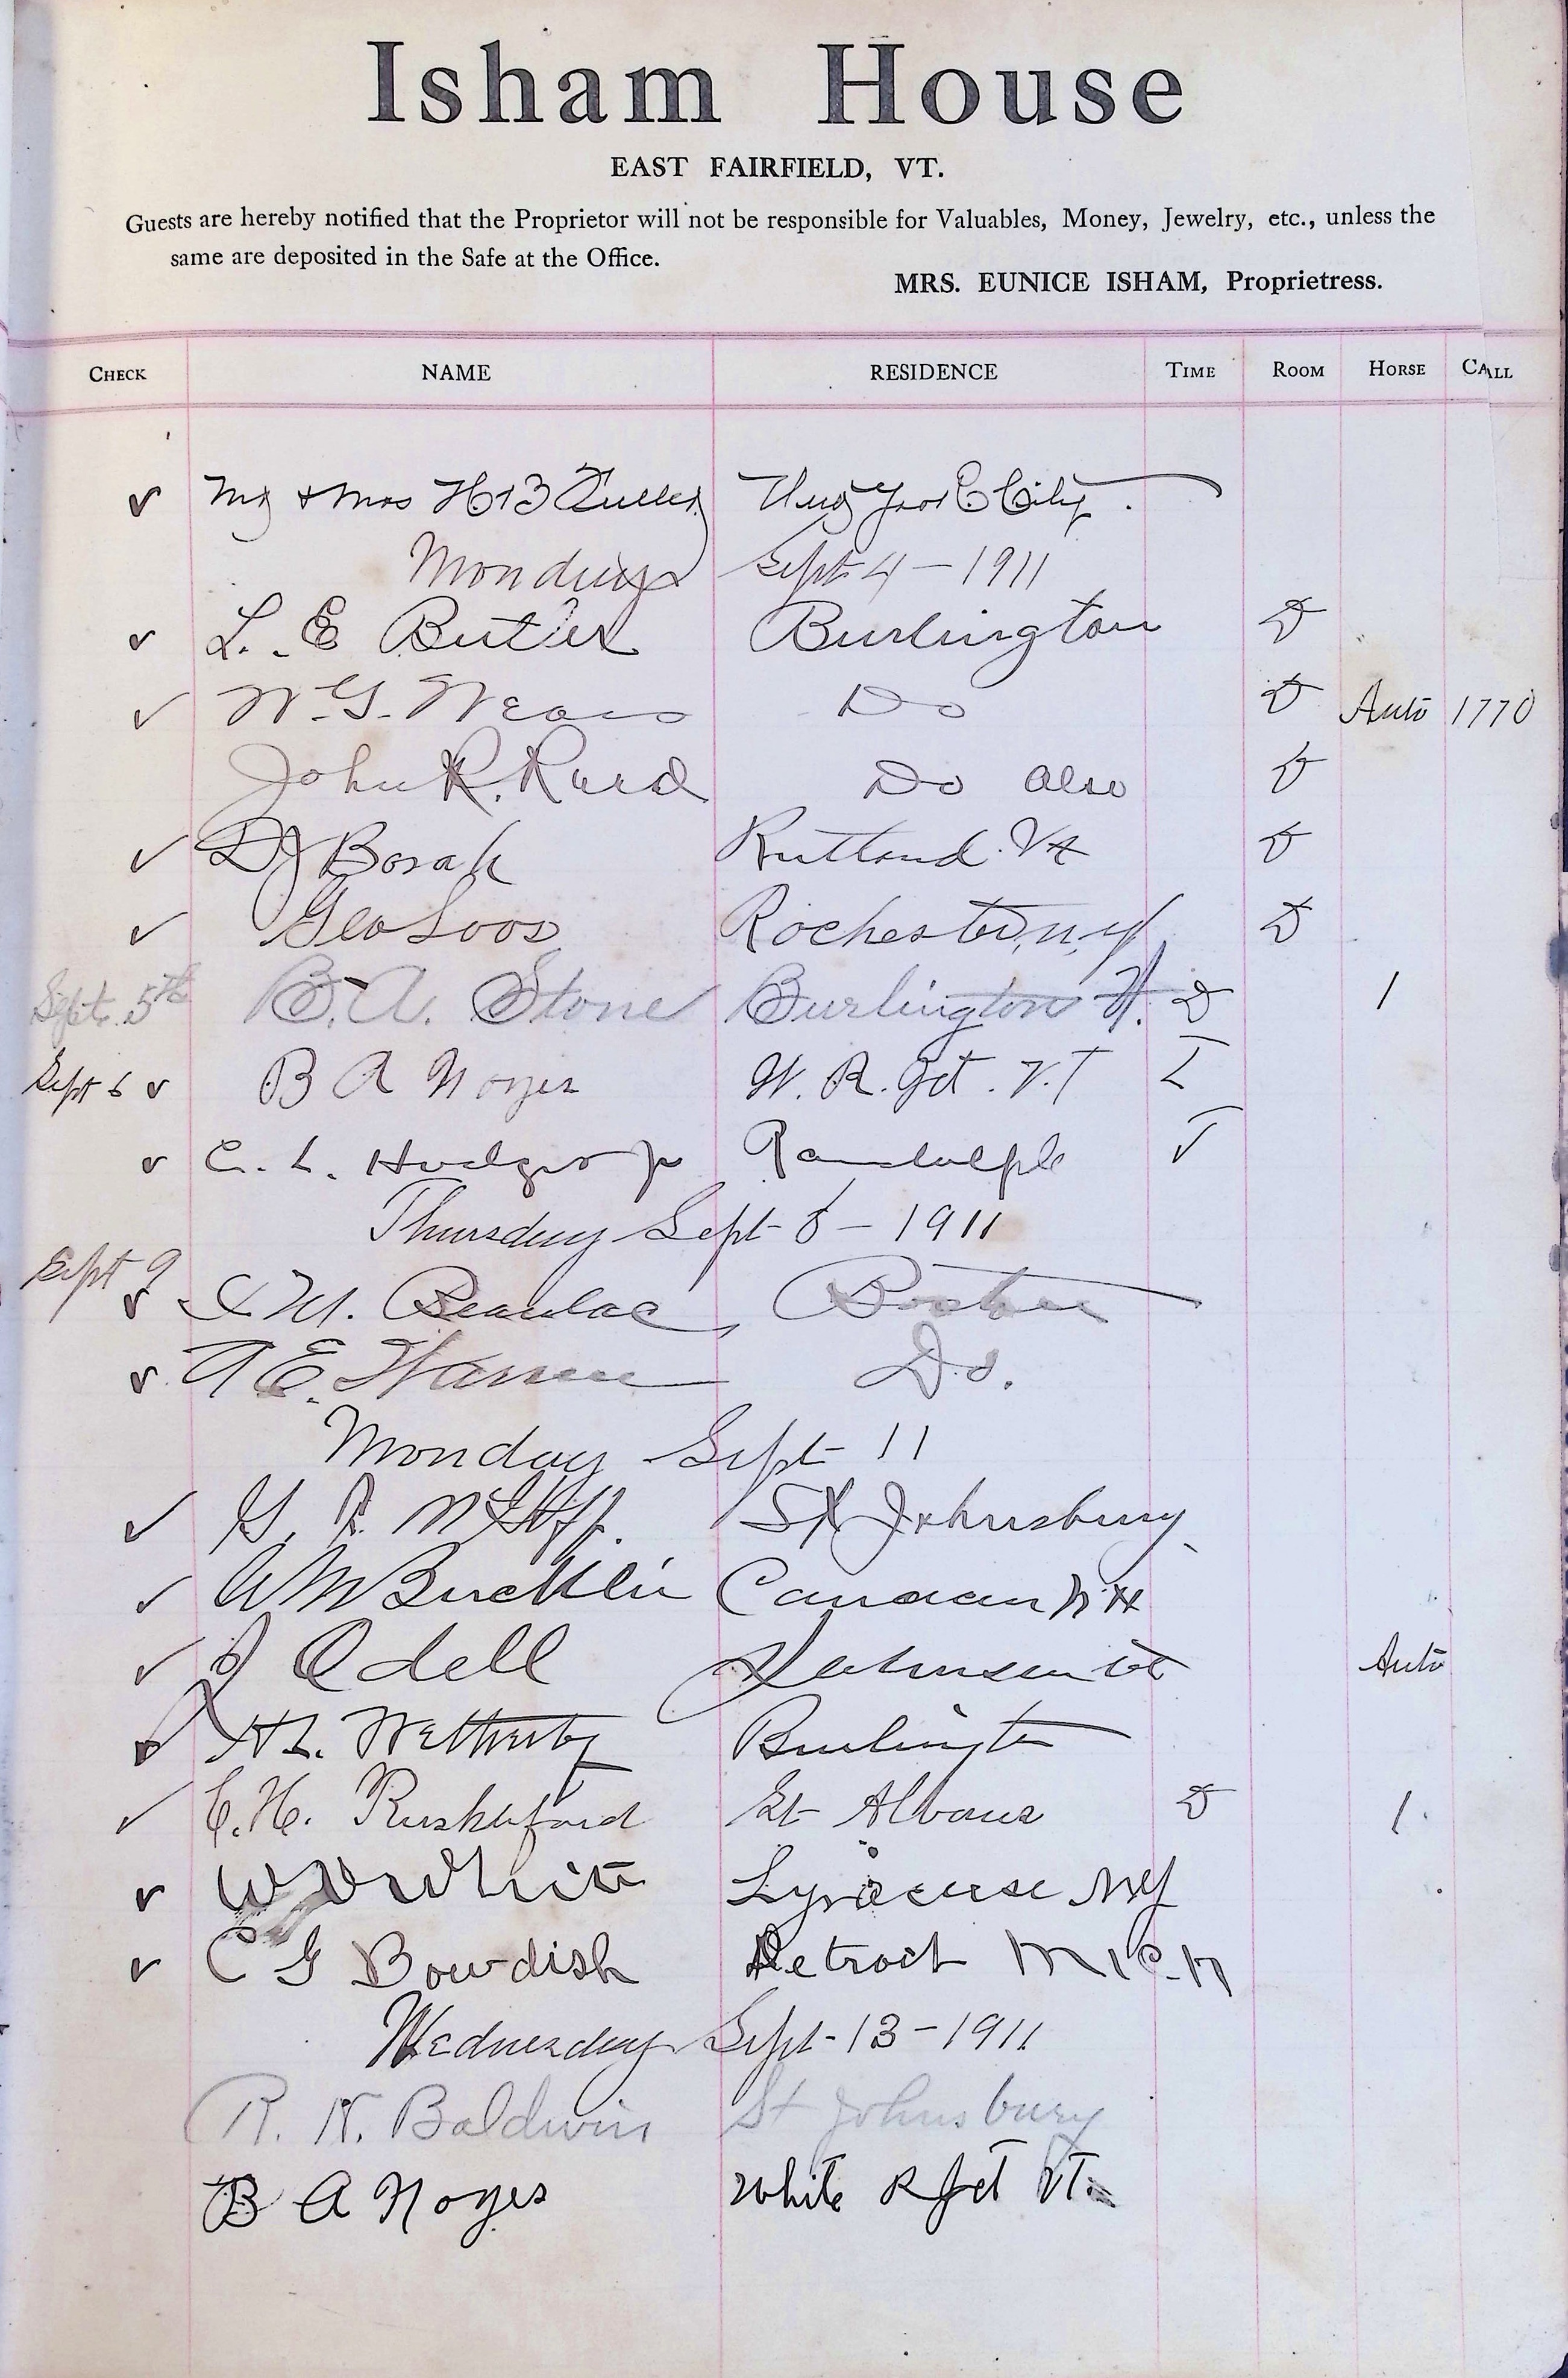 Isham House
EAST FAIRFIELD, VT.
Guests are hereby notified that the Proprietor will not be responsible for Valuables, Money, Jewelry, etc., unless the
same are deposited in the Safe at the Office.
MRS. EUNICE ISHAM, Proprietress.
CHECK NAME RESIDENCE TIME ROOM HORSE CALL
& Mrs H B Fuller New York City.
Monday Sept 4 - 1911
L. E Butler Burlington D
W. G. Do D Auto 1770
John R. Do also D
Borah Rutland Vt D
Geo Loos Rochester, N.Y D
Sept. 5th B. A. Stone Burlington Vt. D 1
Sept 6 B A Noyes W. R. Jct. V.T
C. L. Hodges Jr Randolph
Thursday Sept 6 - 1911
Sept 9 Boston
A E. Warren Do.
Monday Sept 11
St Johnsbury
W M Bucklin Canaan N H
J Odell Johnson Vt Auto
H L. Wetherby Burlington
C. H. Rushford St Albans D 1
White Syracuse N Y
C G Bowdish Detroit MICH
Wednesday Sept - 13 - 1911
R. N. Baldwin St Johnsbury
B A Noyes White R Jct VT.